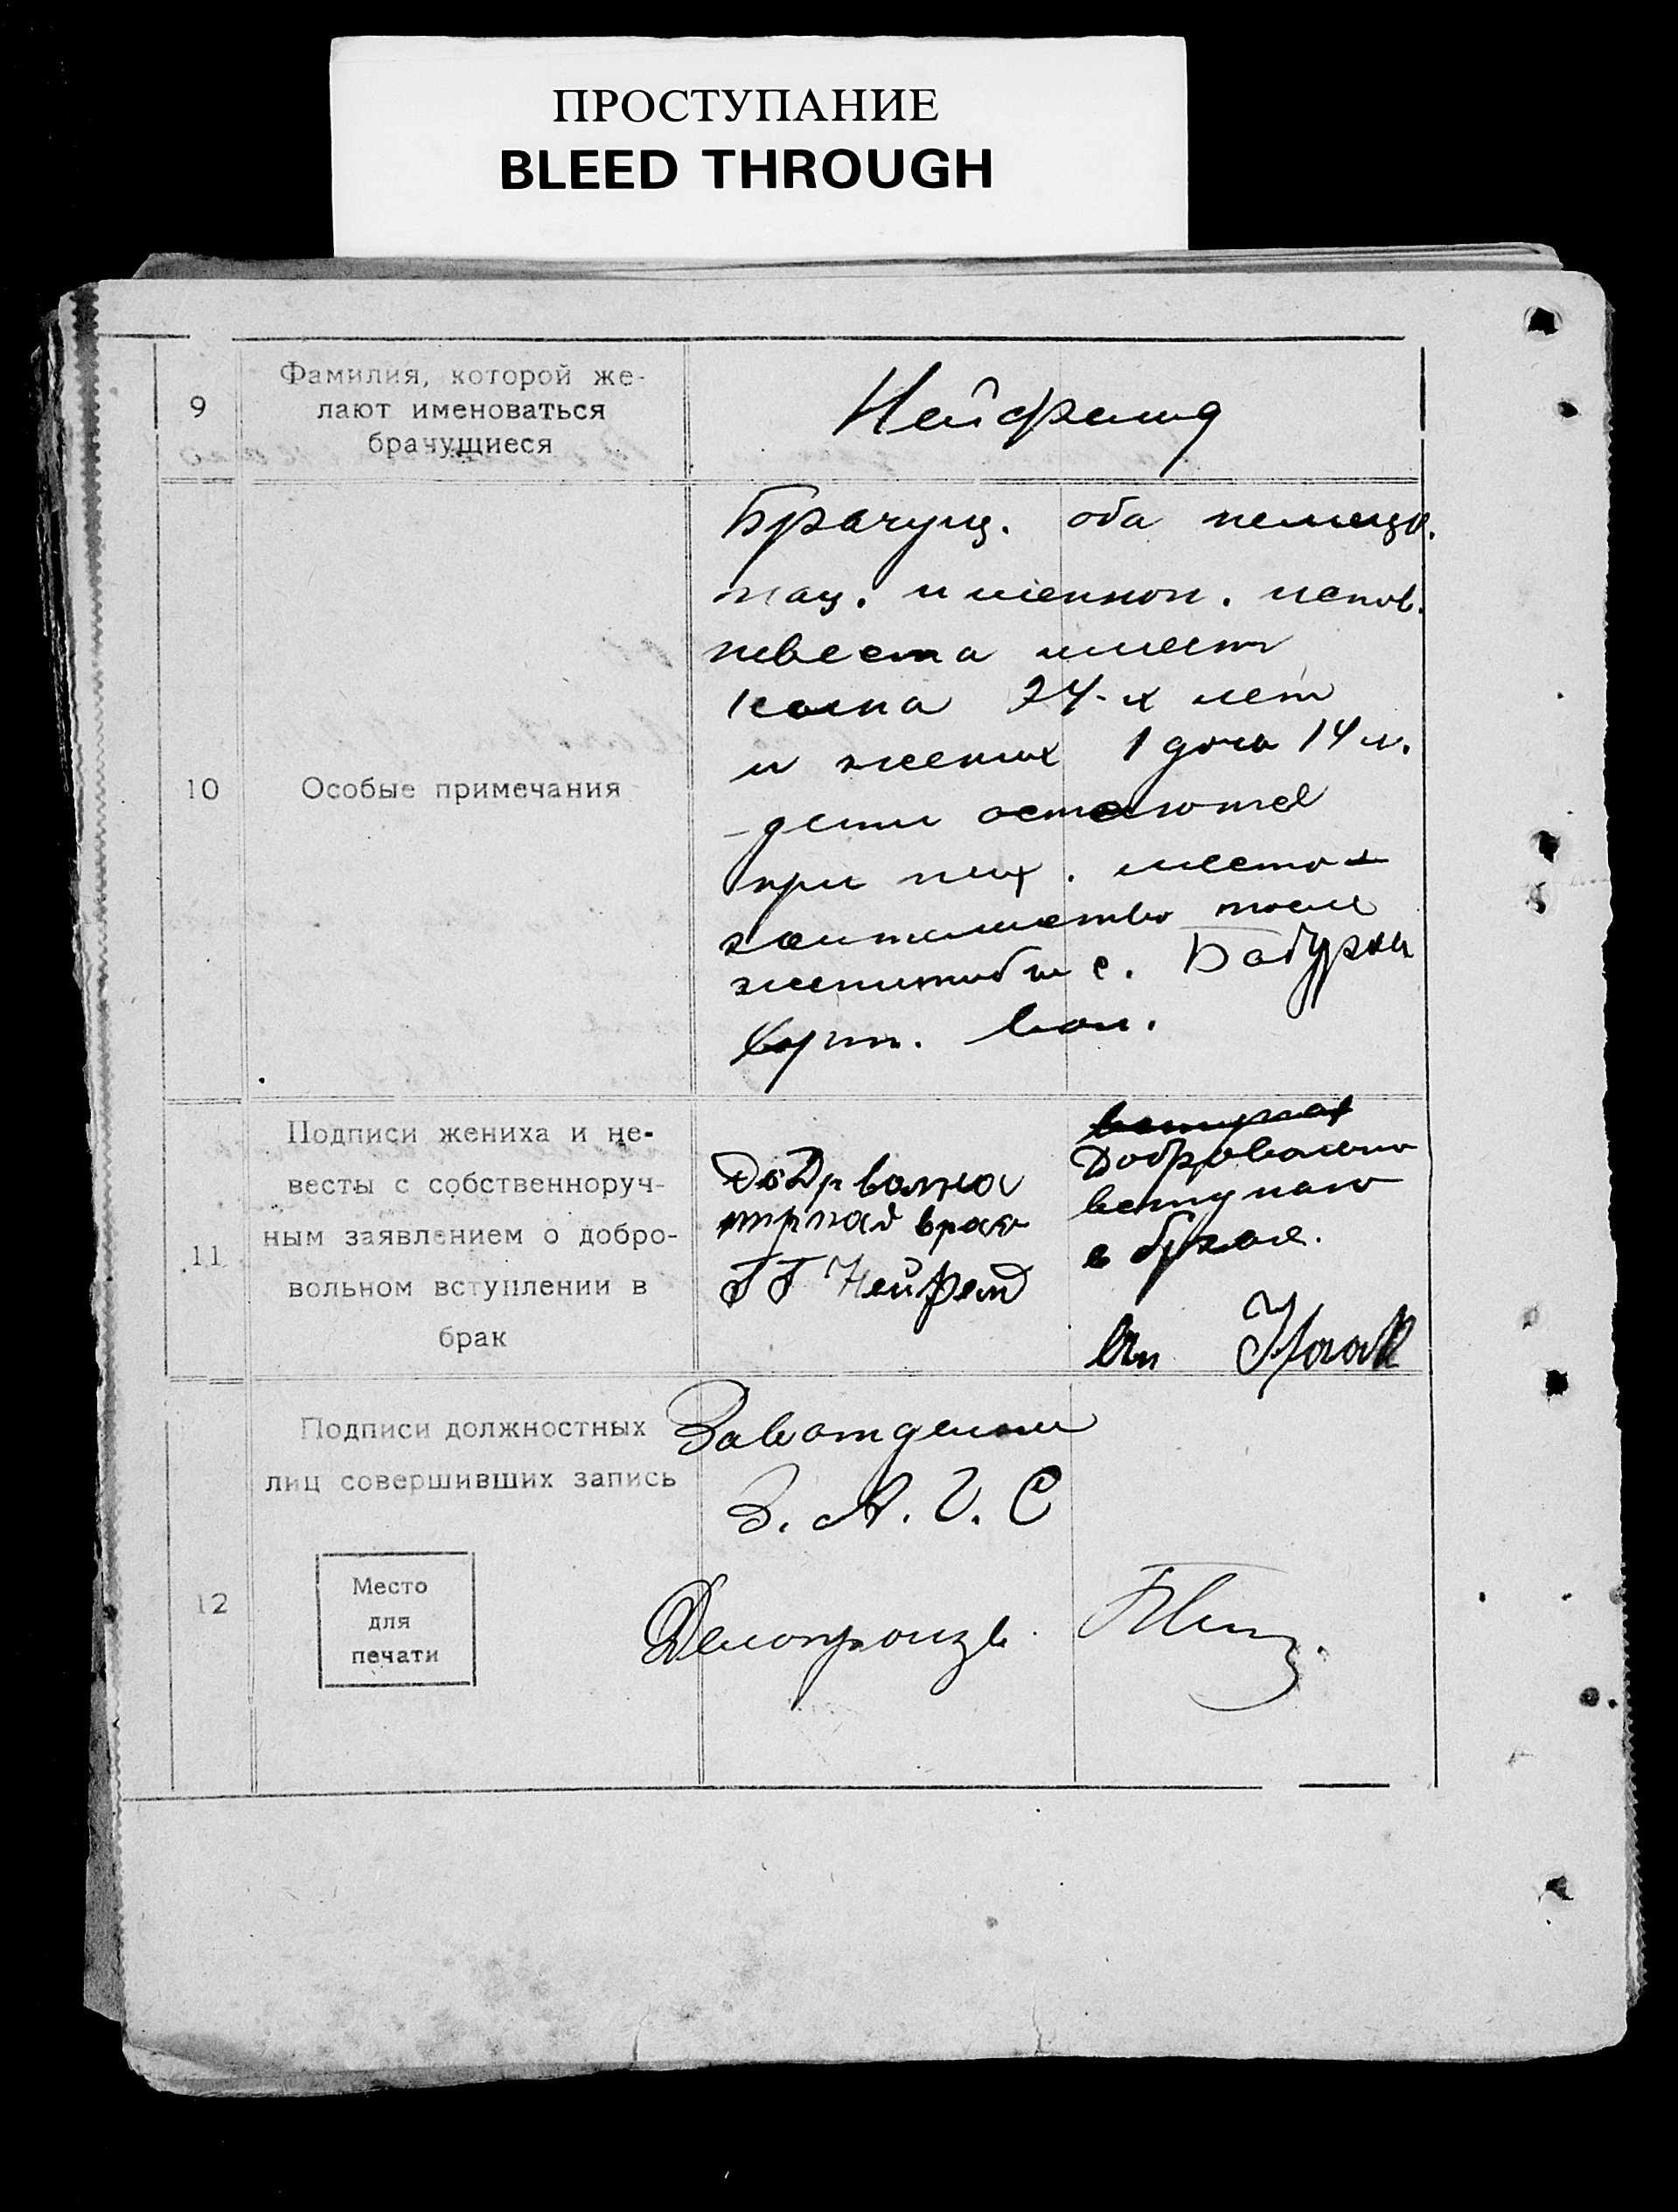 ПРОСТУПАНИЕ
BLEED THROUGH
9
Фамилия, которой же-
лают именоваться
брачущиеся
Нейфельд
10
Особые примечания
Брачущ. оба немецк.
нац. и меннон. испов.
невеста имеет
24-х лет
и жених 1 дочь 14 л.
- дети остаются
при них. место-
жительство после
женитьбы с. Бабурка
Хорт. вол.
11
Подписи жениха и не-
весты с собственноруч-
ным заявлением о добро-
вольном вступлении в
брак
брак
Нейфелд
Добровольно
вступаю
в брак.
12
Подписи должностных
лиц совершивших запись
Место
для
печати
Завотделом
З. А. Г. С
Делопроизв.